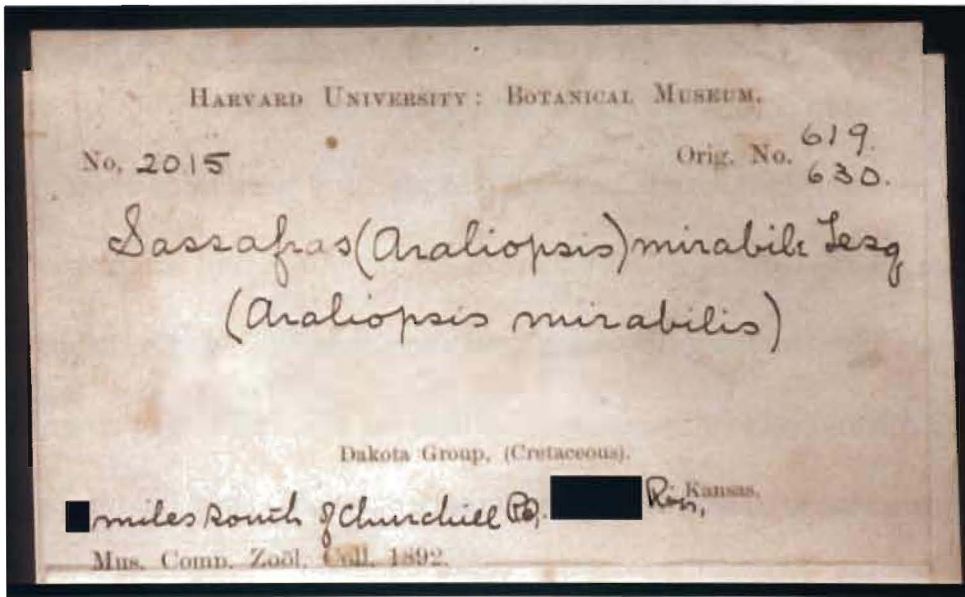 HARVARD UNIVERSITY: BOTANICAL MUSEUM.
No. 2015 Orig. No. 619.
630.
Sassafras (Araliopsis) mirabile Lesq
(Araliopsis mirabilis)
Dakota Group, (Cretaceous).
miles south of Churchill Kansas.
Mus. Comp. Zoöl. Coll. 1892.